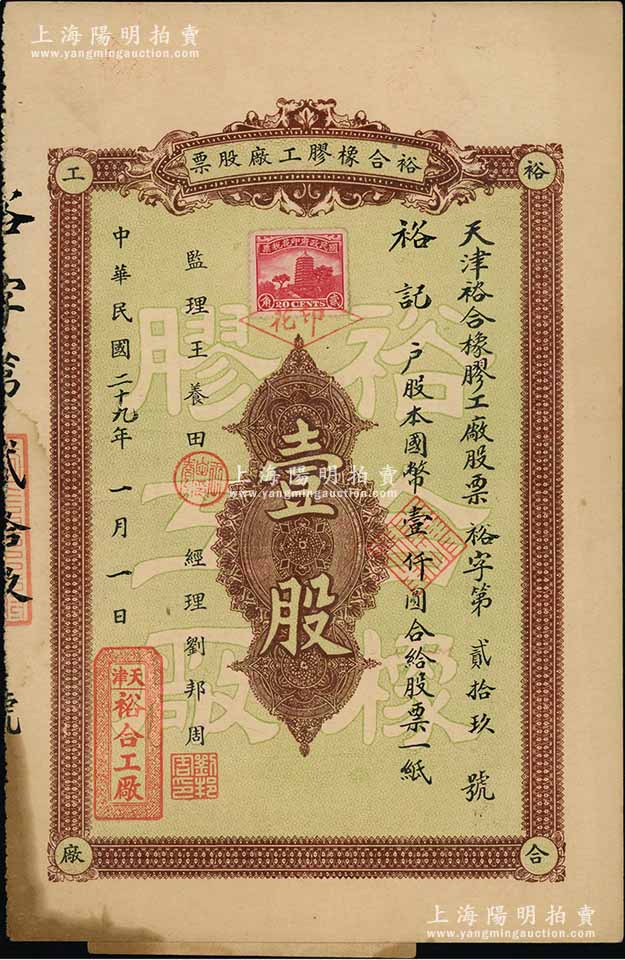 上海陽明拍賣
www.yangmingauction.com
裕合橡膠工廠股票
裕
合
工
廠
天津裕合橡膠工廠股票 裕字第 貳拾玖 號
裕記 户股本國幣壹仟圓合給股票一紙
國民政府印花税票
貳角
20 CENTS
印花
裕合橡
膠工廠
壹股
上海陽明拍賣
www.yangmingauction.com
監理王養田
經理劉邦周
劉邦周印
中華民國二十九年 一月一日
天津
裕合工廠
裕字第 貳拾玖 號
上海陽明拍賣
www.yangmingauction.com